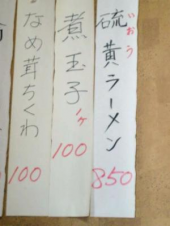 いおう
硫黄ラーメン
850
煮玉子
1ヶ
100
なめ茸ちくわ
100